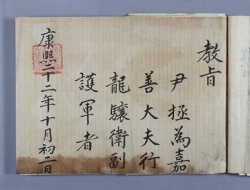 教旨
尹拯為嘉
善大夫行
龍驤衛副
護軍者
康熙二十二年十月初二日